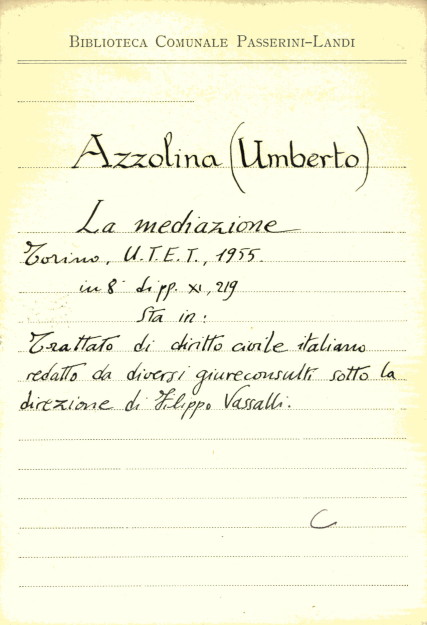 BIBLIOTECA COMUNALE PASSERINI-LANDI
Azzolina (Umberto)
La mediazione
Torino, U.T.E.T., 1955.
in 8° di pp. XI, 219
Sta in:
Trattato di diritto civile italiano
redatto da diversi giureconsulti sotto la
direzione di Filippo Vassalli.
C